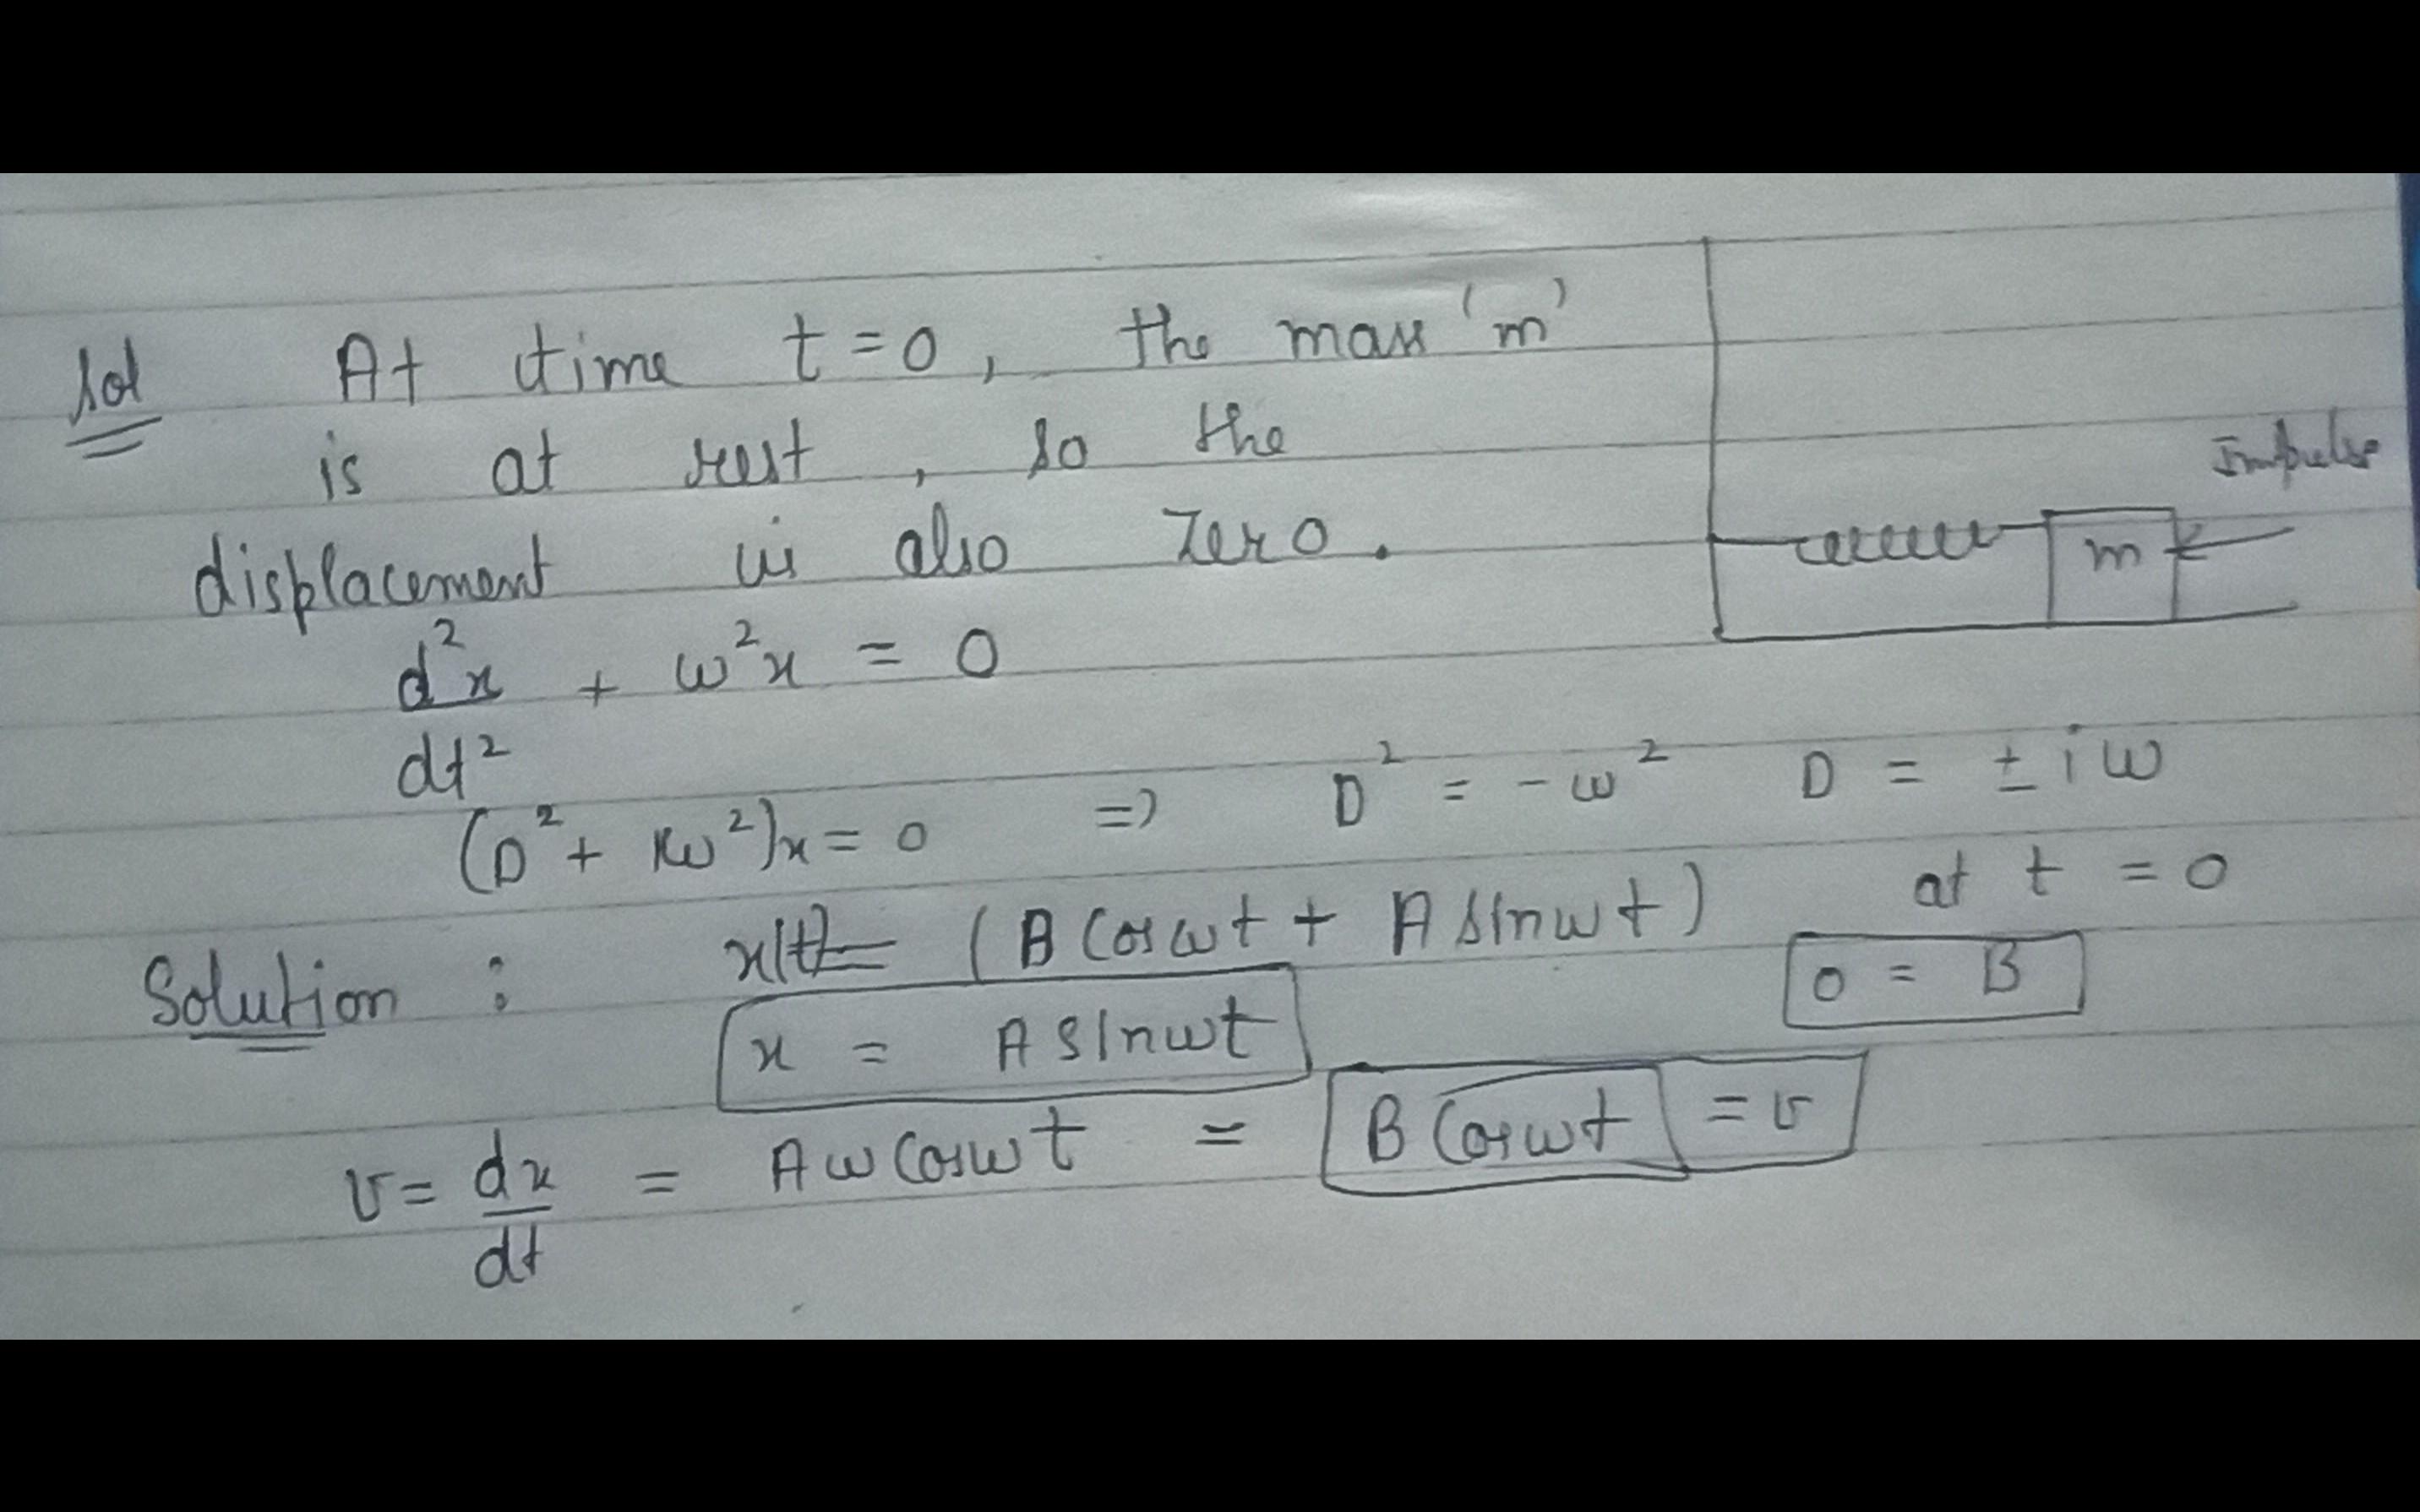 Sol At time t = 0, the mass 'm'
is at rest, so the
displacement is also zero.
Impulse
m
d²x/dt² + ω²x = 0
(D² + ω²)x = 0 => D² = -ω² D = ± iω
Solution : x(t) = (B Cos ωt + A sin ωt) at t = 0
x = A sin ωt 0 = B
v = dx/dt = Aω Cos ωt = B Cos ωt = v